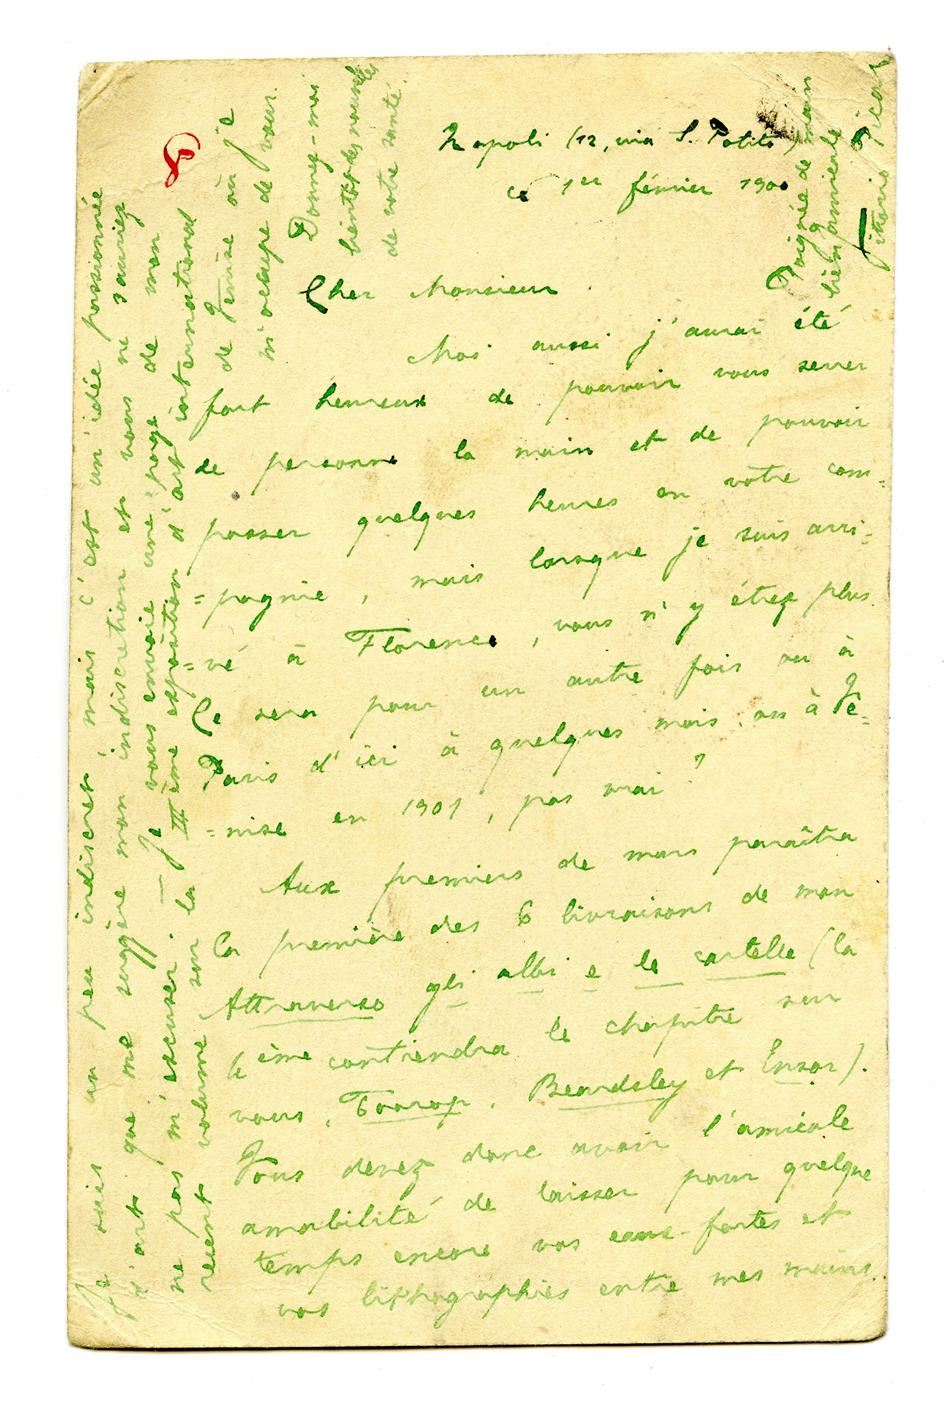 Napoli (12, via S. Potito)
ce 1er février 1900
Cher Monsieur
Moi aussi j'aurai été
fort heureux de pouvoir vous serrer
de personne la main et de pouvoir
passer quelques heures en votre com=
=pagnie, mais lorsque je suis arri=
=vé à Florence, vous n'y étiez plus.
Ce sera pour un autre fois ou à
Paris d'ici à quelques mois ou à Ve=
=nise en 1901, pas vrai?
Aux premiers de mars paraîtra
la première des 6 livraisons de mon
Attraverso gli albi e le cartelle (la
6ème contiendra le chapitre sur
vous, Toorop, Beardsley et Ensor).
Vous devez donc avoir l'amicale
amabilité de laisser pour quelque
temps encore vos eaux-fortes et
vos lithographies entre mes mains.
Je suis un peu indiscret, mais c'est un'idée passionnée
d'art que me suggère mon indiscretion et vous ne sauriez
ne pas m'excuser. — Je vous envoie une page de mon
recent volume sur la IIIème exposition d'art international
de Venise où je
m'occupe de vous.
Donnez-moi
bientôt des nouvelles
de votre santé.
Poignée de main
bien amicale
Vittorio Pica